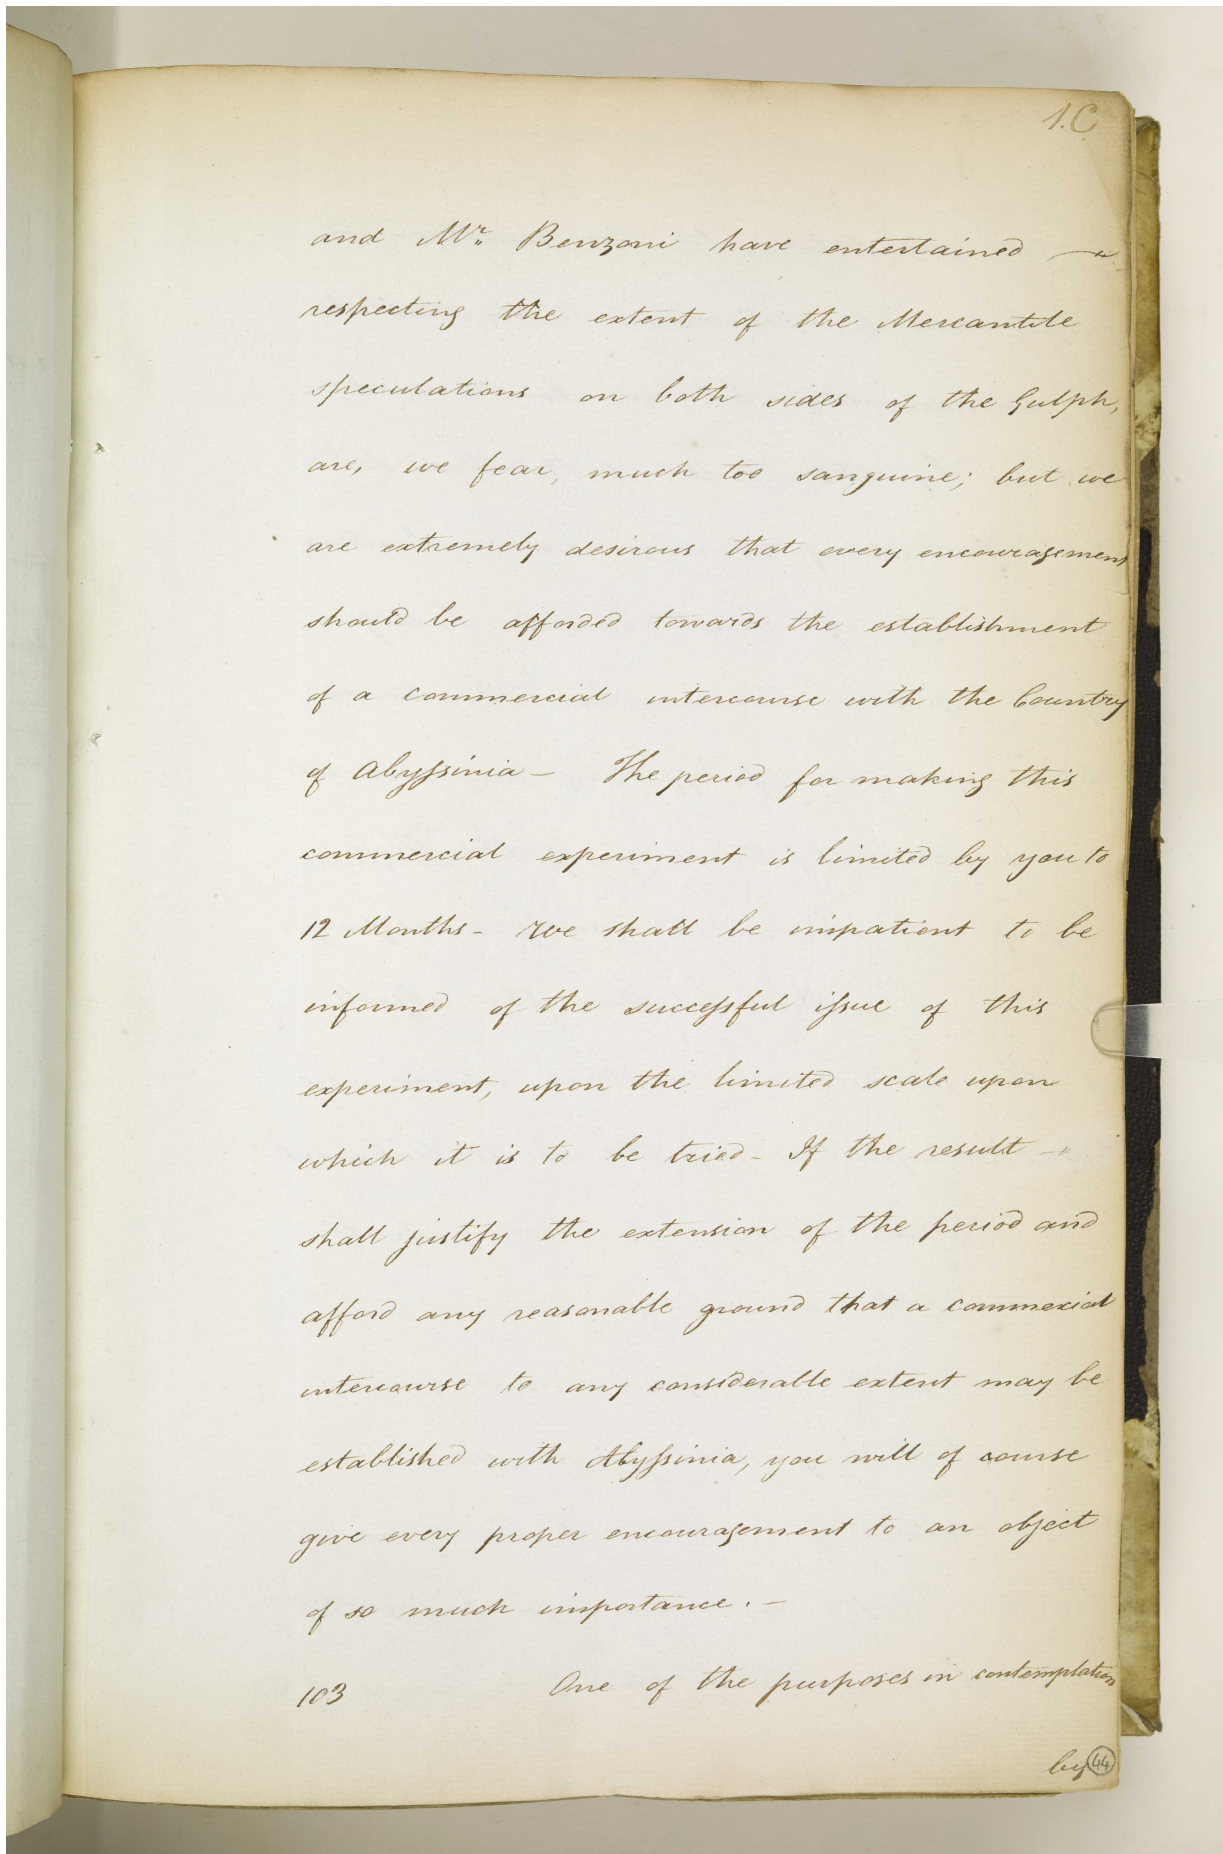 1.C
and Mr. Benzoni have entertained
respecting the extent of the Mercantile
speculations on both sides of the Gulph,
are, we fear, much too sanguine; but we
are extremely desirous that every encouragement
should be afforded towards the establishment
of a commercial intercourse with the Country
of Abyssinia — The period for making this
commercial experiment is limited by you to
12 Months - We shall be impatient to be
informed of the successful issue of this
experiment, upon the limited scale upon
which it is to be tried - If the result
shall justify the extension of the period and
afford any reasonable ground that a commercial
intercourse to any considerable extent may be
established with Abyssinia, you will of course
give every proper encouragement to an object
of so much importance. —
103 One of the purposes in contemplation
by
44